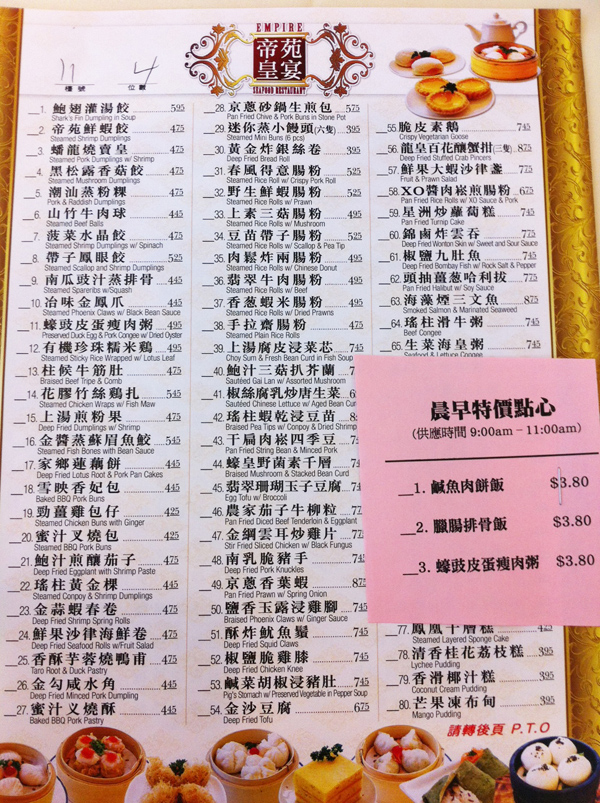 EMPIRE
帝苑
皇宴
SEAFOOD RESTAURANT
11
4
檯號
位數
1. 鮑翅灌湯餃 595
Shark's Fin Dumpling in Soup
2. 帝苑鮮蝦餃 475
Steamed Shrimp Dumplings
3. 蟠龍燒賣皇 475
Steamed Pork Dumplings w/ Shrimp
4. 黑松露香菇餃 475
Steamed Mushroom Dumplings
5. 潮汕蒸粉粿 475
Pork & Raddish Dumplings
6. 山竹牛肉球 445
Steamed Beef Balls
7. 菠菜水晶餃 475
Steamed Shrimp Dumplings w/ Spinach
8. 帶子鳳眼餃 525
Steamed Scallop and Shrimp Dumplings
9. 南瓜豉汁蒸排骨 445
Steamed Spareribs w/Squash
10. 冶味金鳳爪 445
Steamed Phoenix Claws w/ Black Bean Sauce
11. 蠔豉皮蛋瘦肉粥 495
Preserved Duck Egg & Pork Congee w/ Dried Oyster
12. 有機珍珠糯米雞 495
Steamed Sticky Rice Wrapped w/ Lotus Leaf
13. 柱候牛筋肚 445
Braised Beef Tripe & Comb
14. 花膠竹絲鷄扎 545
Steamed Chicken Wraps w/ Fish Maw
15. 上湯煎粉果 475
Deep Fried Dumplings w/ Shrimp
16. 金醬蒸蘇眉魚餃 545
Steamed Fish Bones with Bean Sauce
17. 家鄉蓮藕餅 445
Deep Fried Lotus Root & Pork Pan Cakes
18. 雪映香妃包 445
Baked BBQ Pork Buns
19. 勁薑雞包仔 425
Steamed Chicken Buns with Ginger
20. 蜜汁叉燒包 425
Steamed BBQ Pork Buns
21. 鮑汁煎釀茄子 475
Deep Fried Eggplant with Shrimp Paste
22. 瑤柱黃金粿 445
Steamed Conpoy & Shrimp Dumplings
23. 金蒜蝦春卷 475
Deep Fried Shrimp Spring Rolls
24. 鮮果沙律海鮮卷 475
Deep Fried Seafood Rolls w/Fruit Salad
25. 香酥芋蓉燒鴨甫 445
Taro Root & Duck Pastry
26. 金勾咸水角 445
Deep Fried Minced Pork Dumpling
27. 蜜汁叉燒酥 445
Baked BBQ Pork Pastry
28. 京蔥砂鍋生煎包 575
Pan Fried Chive & Pork Buns in Stone Pot
29. 迷你蒸小饅頭(六隻) 395
Steamed Mini Buns (6 pcs)
30. 黃金炸銀絲卷 395
Deep Fried Bread Roll
31. 春風得意腸粉 525
Steamed Rice Rolls w/ Crispy Pork Roll
32. 野生鮮蝦腸粉 525
Steamed Rice Rolls w/ Prawn
33. 上素三菇腸粉 495
Steamed Rice Rolls w/Mushroom
34. 豆苗帶子腸粉 525
Steamed Rice Rolls w/ Scallop & Pea Tip
35. 肉鬆炸兩腸粉 495
Steamed Rice Rolls w/ Chinese Donut
36. 翡翠牛肉腸粉 495
Steamed Rice Rolls w/ Beef
37. 香葱蝦米腸粉 495
Steamed Rice Rolls w/ Dried Prawns
38. 手拉齋腸粉 475
Steamed Plain Rice Rolls
39. 上湯腐皮浸菜芯
Choy Sum & Fresh Bean Curd in Fish Soup
40. 鮑汁三菇扒芥蘭
Sautéed Gai Lan w/ Assorted Mushroom
41. 椒絲腐乳炒唐生菜
Sautéed Chinese Lettuce w/ Aged Bean Cur
42. 瑤柱蝦乾浸豆苗
Braised Pea Tips w/ Conpoy & Dried Shrimp
43. 干扁肉崧四季豆
Pan Fried String Bean & Minced Pork
44. 蠔皇野菌素千層
Braised Mushroom & Stacked Bean Curd
45. 翡翠珊瑚玉子豆腐
Egg Tofu w/ Broccoli
46. 農家茄子牛柳粒
Pan Fried Diced Beef Tenderloin & Eggplant
47. 金網雲耳炒雞片
Stir Fried Sliced Chicken w/ Black Fungus
48. 南乳脆豬手
Deep Fried Pork Knuckles
49. 京蔥香葉蝦
Pan Fried Prawn w/ Spring Onion
50. 鹽香玉露浸雞腳
Braised Phoenix Claws w/ Ginger Sauce
51. 酥炸魷魚鬚
Deep Fried Squid Claws
52. 椒鹽脆雞膝
Deep Fried Chicken Knee
53. 鹹菜胡椒浸豬肚 745
Pig's Stomach w/ Preserved Vegetable in Pepper Soup
54. 金沙豆腐 675
Deep Fried Tofu
55. 脆皮素鵝 745
Crispy Vegetarian Goose
56. 龍皇百花釀蟹拑(三隻) 875
Deep Fried Stuffed Crab Pincers
57. 鮮果大蝦沙律盞 775
Fruit & Prawn Salad
58. XO醬肉崧煎腸粉 675
Pan Fried Rice Rolls w/ XO Sauce & Pork
59. 星洲炒蘿蔔糕 745
Pan Fried Turnip Cake
60. 錦鹵炸雲吞 775
Deep Fried Wonton Skin w/ Sweet and Sour Sauce
61. 椒鹽九肚魚 745
Deep Fried Bombay Fish w/ Rock Salt & Pepper
62. 頭抽薑葱哈利拔 775
Pan Fried Halibut w/ Soy Sauce
63. 海藻煙三文魚 875
Smoked Salmon & Marinated Seaweed
64. 瑤柱滑牛粥 745
Beef Congee
65. 生菜海皇粥 745
Seafood & Lettuce Congee
晨早特價點心
(供應時間 9:00am – 11:00am)
1. 鹹魚肉餅飯 $3.80
2. 臘腸排骨飯 $3.80
3. 蠔豉皮蛋瘦肉粥 $3.80
77. 鳳凰千層糕 445
Steamed Layered Sponge Cake
78. 清香桂花荔枝糕 395
Lychee Pudding
79. 香滑椰汁糕 395
Coconut Cream Pudding
80. 芒果凍布甸 395
Mango Pudding
請轉後頁 P.T.O